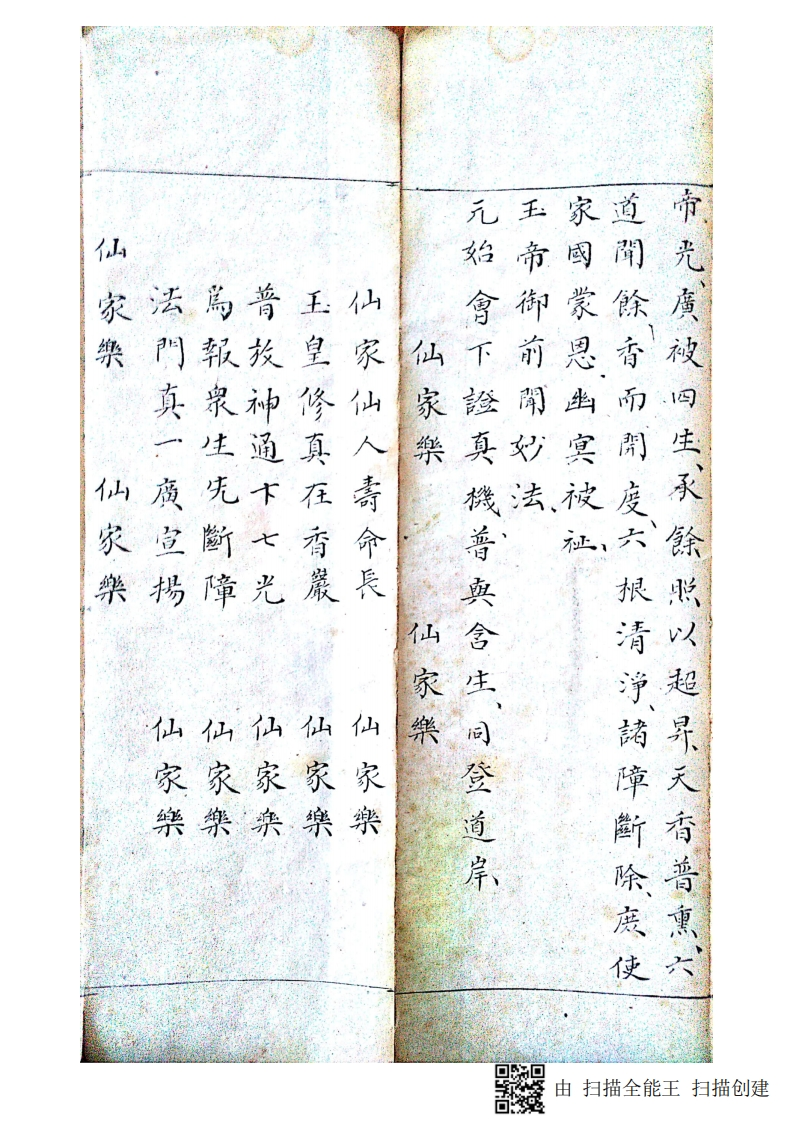 帝光、廣被四生、承餘照以超昇、天香普熏、六
道聞餘香而開度、六根清淨、諸障斷除、庶使
家國蒙恩、幽冥被祉、
玉帝御前聞妙法、
元始會下證真機、普與含生、同登道岸、
仙家樂 仙家樂
仙家仙人壽命長 仙家樂
玉皇修真在香嚴 仙家樂
普放神通下七光 仙家樂
為報衆生先斷障 仙家樂
法門真一廣宣揚 仙家樂
仙家樂 仙家樂
由 扫描全能王 扫描创建